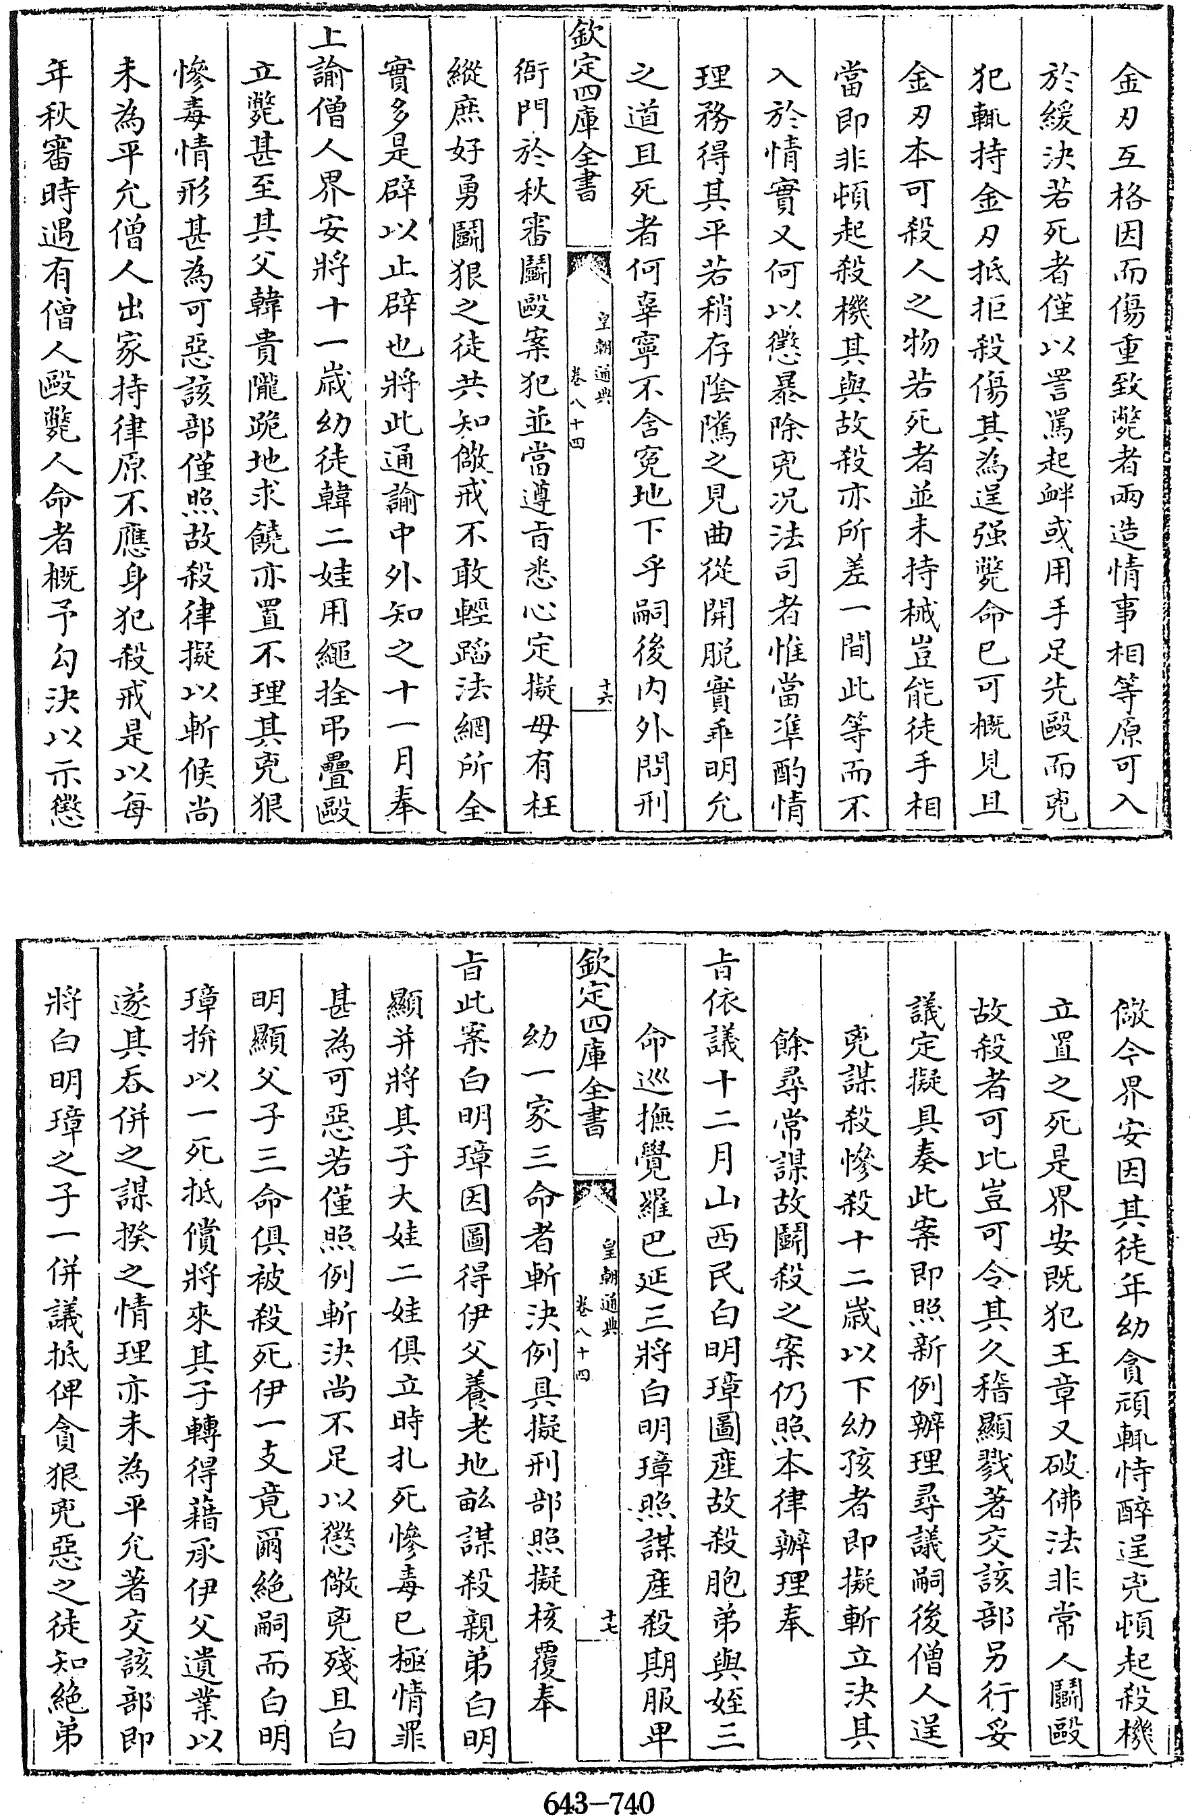 金刃互格因而傷重致斃者兩造情事相等原可入
於緩決若死者僅以詈罵起衅或用手足先毆而兇
犯輒持金刃抵拒殺傷其為逞强斃命已可概見且
金刃本可殺人之物若死者並未持械豈能徒手相
當即非頓起殺機其與故殺亦所差一間此等而不
入於情實又何以懲暴除兇况法司者惟當準酌情
理務得其平若稍存陰隲之見曲從開脱實乖明允
之道且死者何辜寧不含寃地下乎嗣後内外問刑
欽定四庫全書
皇朝通典
卷八十四
十六
衙門於秋審鬭毆案犯並當遵㫖悉心定擬毋有枉
縱庶好勇鬭狠之徒共知儆戒不敢輕蹈法網所全
實多是辟以止辟也將此通諭中外知之十一月奉
上諭僧人界安將十一歲幼徒韓二娃用繩拴弔疊毆
立斃甚至其父韓貴隴跪地求饒亦置不理其兇狠
慘毒情形甚為可惡該部僅照故殺律擬以斬候尚
未為平允僧人出家持律原不應身犯殺戒是以每
年秋審時遇有僧人毆斃人命者概予勾決以示懲
儆今界安因其徒年幼貪頑輒恃醉逞兇頓起殺機
立置之死是界安既犯王章又破佛法非常人鬭毆
故殺者可比豈可令其久稽顯戮著交該部另行妥
議定擬具奏此案即照新例辦理尋議嗣後僧人逞
兇謀殺慘殺十二歲以下幼孩者即擬斬立決其
餘尋常謀故鬭殺之案仍照本律辦理奉
㫖依議十二月山西民白明璋圖產故殺胞弟與姪三
命巡撫覺羅巴延三將白明璋照謀產殺期服卑
欽定四庫全書
皇朝通典
卷八十四
十七
幼一家三命者斬決例具擬刑部照擬核覆奉
㫖此案白明璋因圖得伊父養老地畝謀殺親弟白明
顯并將其子大娃二娃俱立時扎死慘毒已極情罪
甚為可惡若僅照例斬決尚不足以懲儆兇殘且白
明顯父子三命俱被殺死伊一支竟爾絶嗣而白明
璋拚以一死抵償將來其子轉得藉承伊父遺業以
遂其吞併之謀揆之情理亦未為平允著交該部即
將白明璋之子一併議抵俾貪狠兇惡之徒知絶弟
643-740